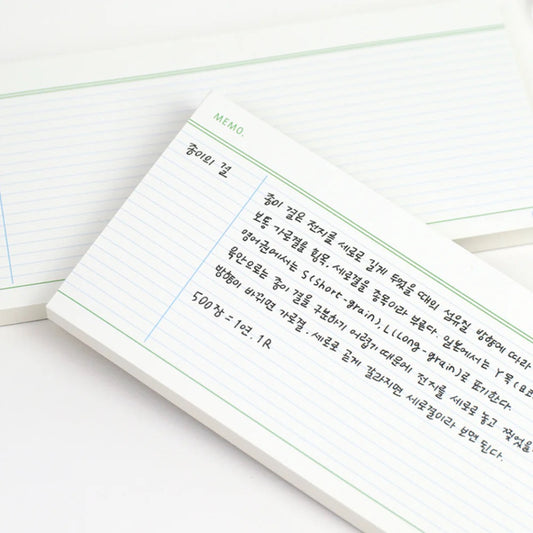 MEMO.
종이의 결
종이 결은 전지를 세로로 길게 두었을 때의 섬유질 방향에 따라
보통 가로결을 횡목, 세로결을 종목이라 부른다. 일본에서는 Y목(요코
영어권에서는 S(short-grain), L(Long-grain)로 표기한다.
육안으로는 종이 결을 구분하기 어렵기 때문에 전지를 세로로 놓고 찢었을
방향이 바뀌면 가로결, 세로로 곧게 갈라지면 세로결이라 보면 된다.
500장 = 1연. 1R